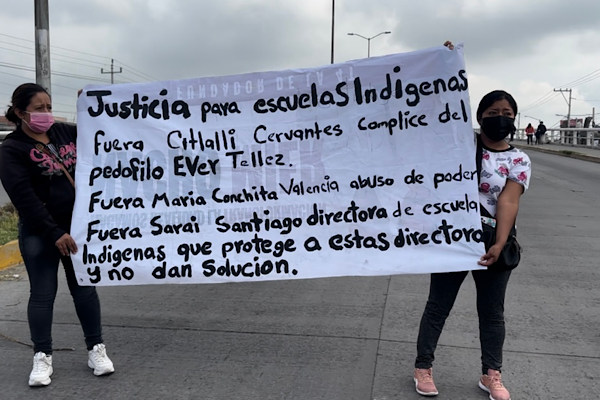 Justicia para escuelas Indigenas
fuera Citlalli Cervantes Complice del
pedofilo EVer Tellez.
Fuera Maria Conchita Valencia abuso de poder
Fuera Sarai Santiago directora de escuela
Indigenas que protege a estas directora
y no dan Solución.
FUNDADOR DE LA